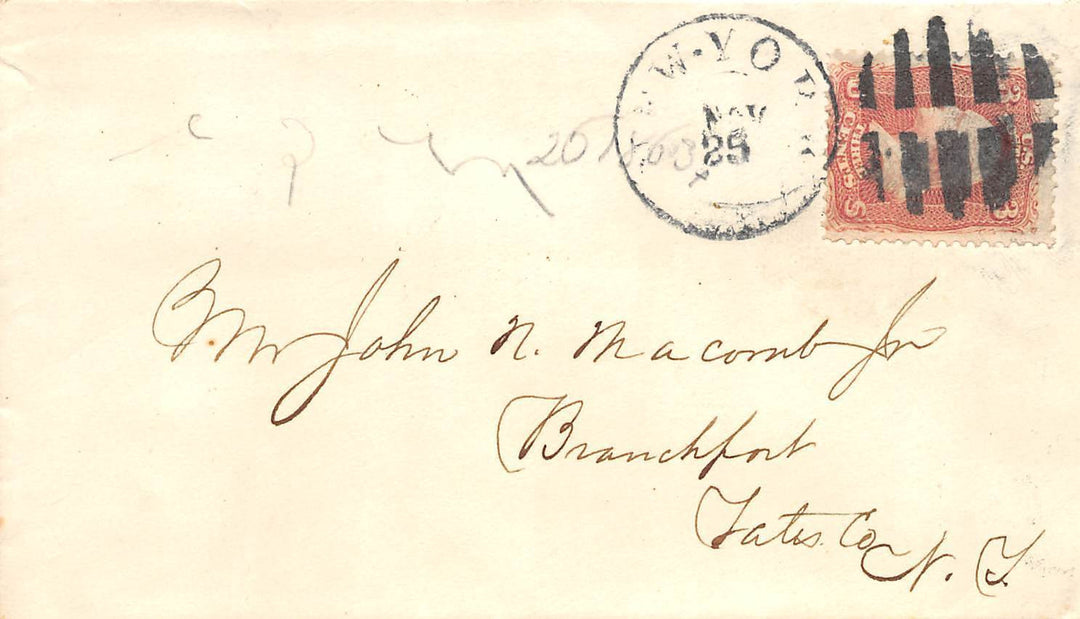 NEW-YORK
NOV
25
U.S.
THREE
CENTS
3
Mr John N. Macomb Jr
Branchport
Yates Co
N. Y.